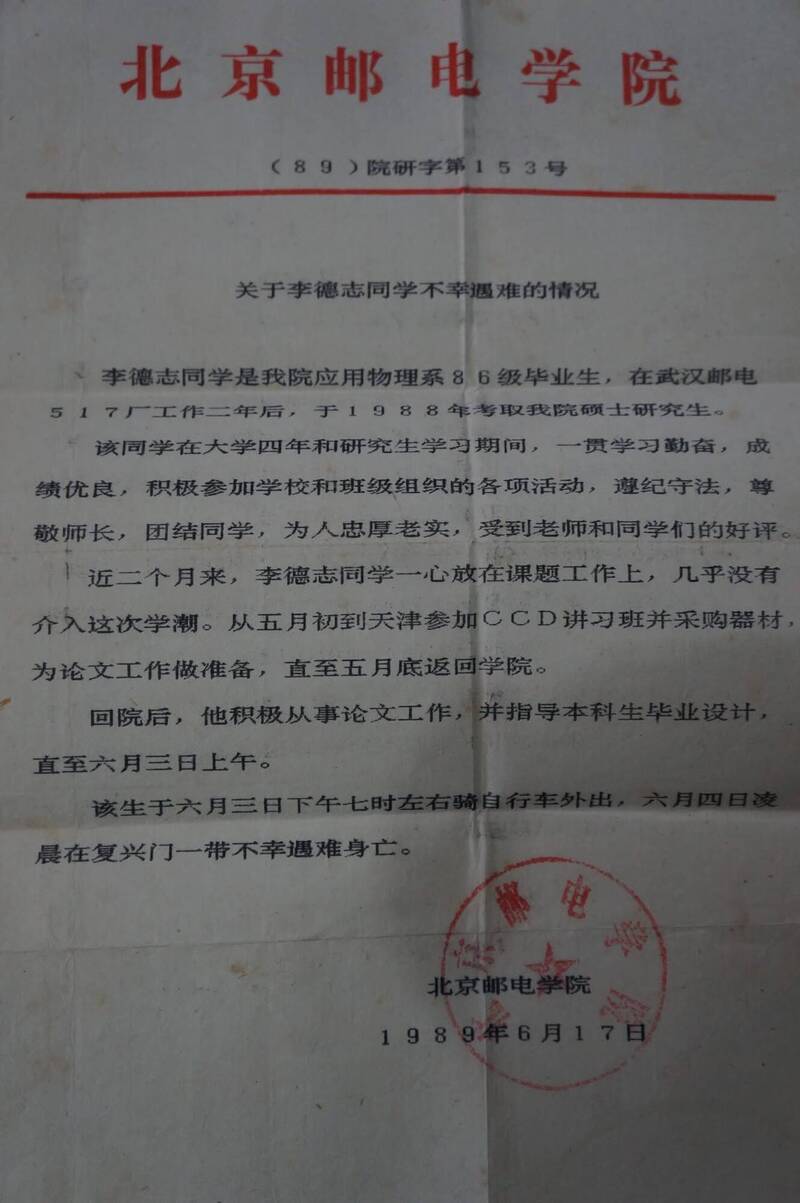 北京邮电学院
（89）院研字第153号
关于李德志同学不幸遇难的情况
李德志同学是我院应用物理系86级毕业生，在武汉邮电
517厂工作二年后，于1988年考取我院硕士研究生。
该同学在大学四年和研究生学习期间，一贯学习勤奋，成
绩优良，积极参加学校和班级组织的各项活动，遵纪守法，尊
敬师长，团结同学，为人忠厚老实，受到老师和同学们的好评。
近二个月来，李德志同学一心放在课题工作上，几乎没有
介入这次学潮。从五月初到天津参加CCD讲习班并采购器材，
为论文工作做准备，直至五月底返回学院。
回院后，他积极从事论文工作，并指导本科生毕业设计，
直至六月三日上午。
该生于六月三日下午七时左右骑自行车外出，六月四日凌
晨在复兴门一带不幸遇难身亡。
邮电学院
北京邮电学院
1989年6月17日